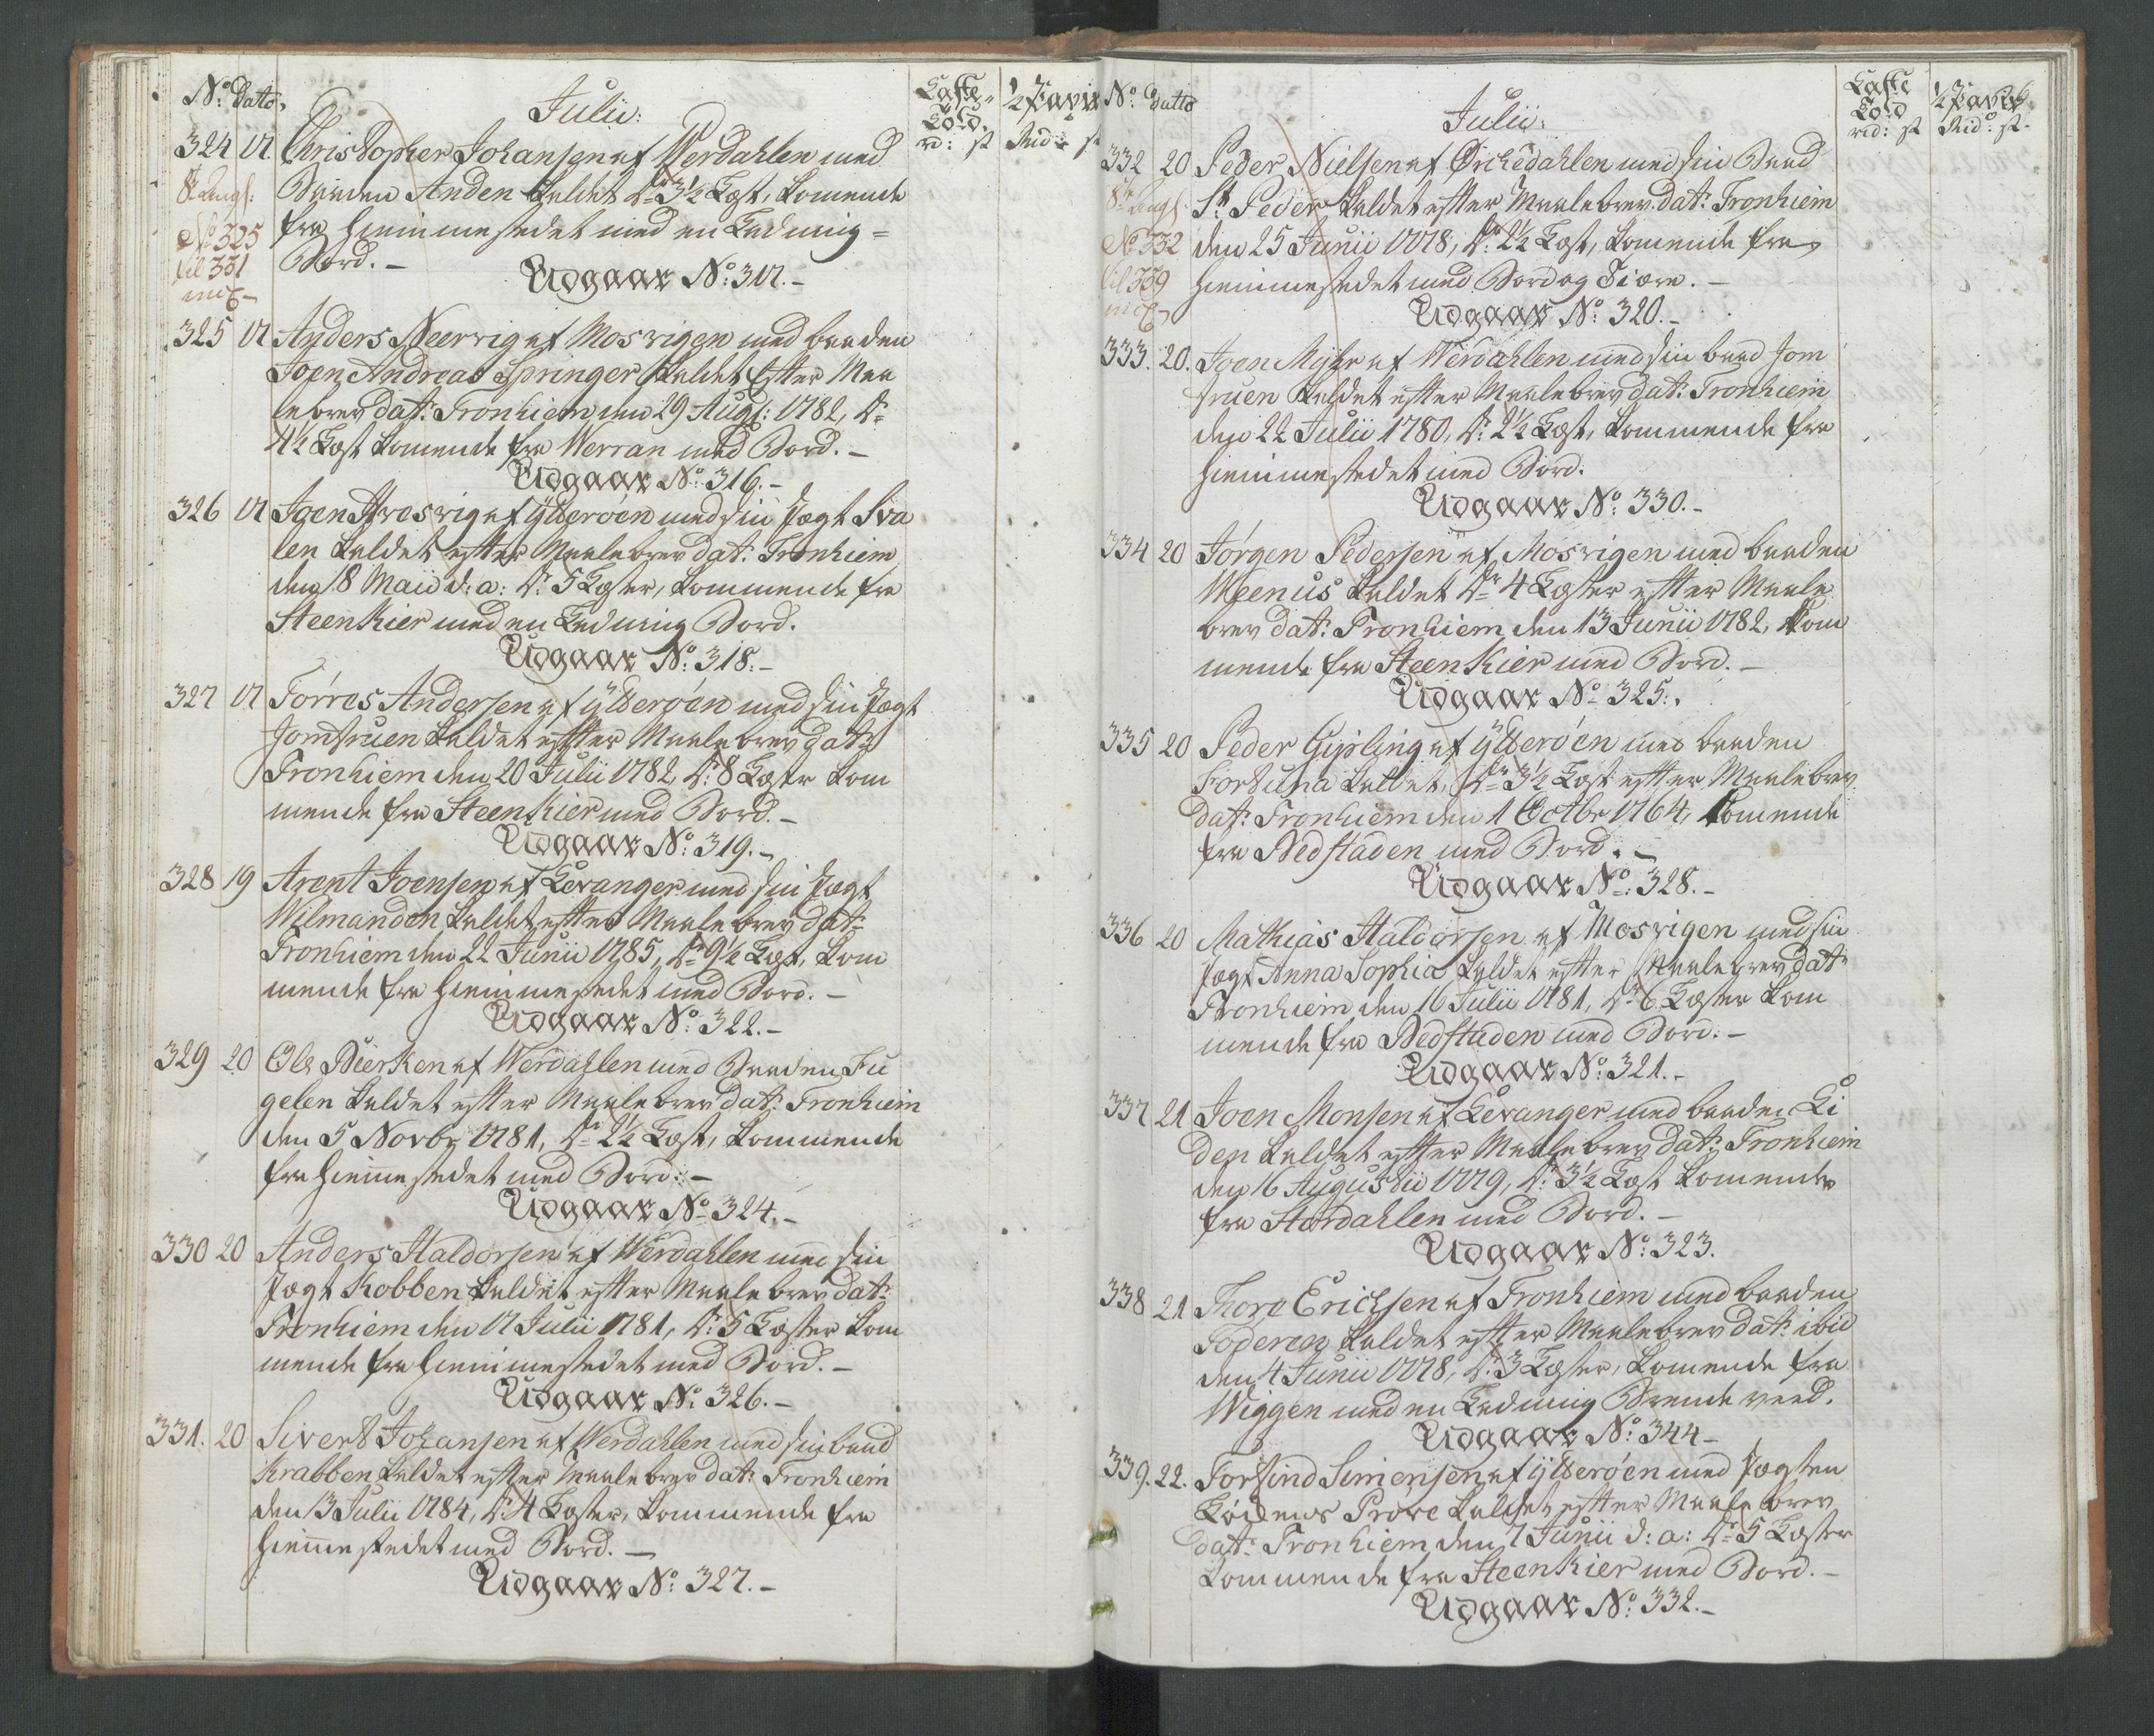 No: Dato,
Julii:
Læste-
Told.
rd: st
½ Tarif
Rid: s
324 17. Christopher Johansen af Werdahlen med
Baaden Anden kaldet Dr 3½ Læst, komende
fra Hiemmestedet med en Ladning
Bord. -
No 325
til 331
incl
Udgaar No: 317. -
325 17 Anders Neervig af Mosvigen med baaden
Joen Andreas Springer kaldet Efter Maa
lebrev dat: Tronhiem den 29 Aug: 1782, Dr
4½ Læst komende fra Werran med Bord. -
Udgaar No: 316. -
326 17 Joen Hresvig af Ytterøen med sin Jægt Sva
len kaldet efter Maalebrev dat: Tronhiem
den 18 Maii d: a: Dr 5 Læster, kommende fra
Steenkier med en Ladning Bord.
Udgaar No: 318. -
327 17 Tørres Andersen af Ytterøen med sin Jægt
Jomfruen kaldet efter Maalebrev dat:
Tronhiem den 20 Julii 1782, Dr 8 Læster kom
mende fra Steenkier med Bord. -
Udgaar No: 319. -
328 19 Arent Joensen af Levanger med sin Jægt
Wilmanden kaldet efter Maalebrev dat:
Tronhiem den 22 Junii 1785, Dr 9½ Læst, kom
mende fra Hiemmestedet med Bord. -
Udgaar No: 322. -
329 20 Ole Bierken af Werdahlen med Baaden Fu
gelen kaldet efter Maalebrev dat: Tronhiem
den 5 Novbr 1781, Dr 2½ Læst, kommende
fra Hiemestedet med Bord: -
Udgaar No 324. -
330 20 Anders Haldorsen af Werdahlen med sin
Jægt Kobben kaldet efter Maalebrev dat:
Tronhiem den 17 Julii 1781, Dr 5 Læster kom
mende fra Hiemmestedet med Bord. -
Udgaar No: 326. -
331. 20 Sivert Johansen af Werdahlen med sin baad
Krabben kaldet efter Maalebrev dat: Tronhiem
den 13 Julii 1784, Dr 4 Læster, kommende fra
Hiemmestedet med Bord. -
Udgaar No: 327. -
No: Datto
Julii:
Læste
Told
rd: st
½ Tarif
Rid: st.
332 20 Peder Nielsen af Orchedahlen med sin Baad
St Peder kaldet efter Maalebrev dat: Tronhiem
No 332
til 339
incl
den 25 Junii 1778, Dr 2½ Læst, komende fra
Hiemmestedet med Bord og Tiære. -
Udgaar No: 320. -
333. 20. Joen Myhr af Werdahlen med sin baad Jom
fruen kaldet efter Maalebrev dat: Tronhiem
den 22 Julii 1780, Dr 2½ Læst, kommende fra
Hiemmestedet med Bord.
Udgaar No: 330. -
334 20 Jørgen Pedersen af Mosvigen med baaden
Weenus kaldet Dr 4 Læster efter Maale
brev dat: Tronhiem den 13 Junii 1782, kom
mende fra Steenkier med Bord. -
Udgaar No 325.
335 20 Peder Gipling af Ytterøen med baaden
Fortuna kaldet, Dr 3½ Læst efter Maalebrev
dat: Tronhiem den 1 Octbr 1764, komende
fra Bedstaden med Bord. -
Udgaar No: 328. -
336 20 Mathias Haldorsen af Mosvigen med sin
Jægt Anna Sophia kaldet efter Maalebrev dat:
Tronhiem den 16 Julii 1781, Dr 6 Læster kom
mende fra Bedstaden med Bord. -
Udgaar No: 321. -
337 21 Joen Monsen af Levanger med baaden Li
den kaldet efter Maalebrev dat: Tronhiem
den 16 Augustii 1779, Dr 3½ Læst komende
fra Størdahlen med Bord. -
Udgaar No: 323.
338 21 Thore Erichsen af Tronhiem med baaden
Foderen kaldet efter Maalebrev dat: ibid
den 4 Junii 1778, Dr 3 Læster, komende fra
Wiggen med en Ladning Brende veed.
Udgaar No: 344 -
339. 22. Torfind Simensen af Ytterøen med Jægten
Prøve kaldet efter Maalebrev
dat: Tronhiem den 7 Junii d: a: Dr 5 Læster
kommende fra Steenkier med Bord. -
Udgaar No: 332. -